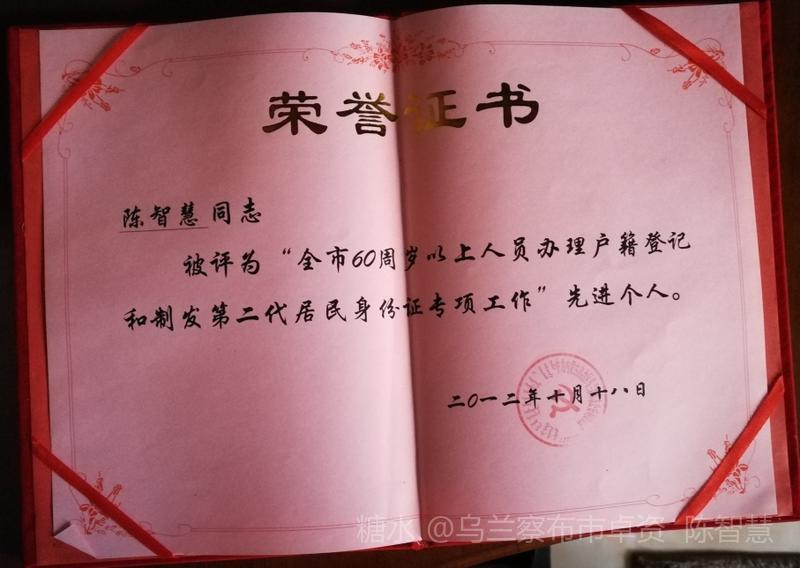 荣誉证书
陈智慧同志
被评为“全市60周岁以上人员办理户籍登记
和制发第二代居民身份证专项工作”先进个人。
二〇一二年十月十八日
糖水 @乌兰察布市卓资 陈智慧